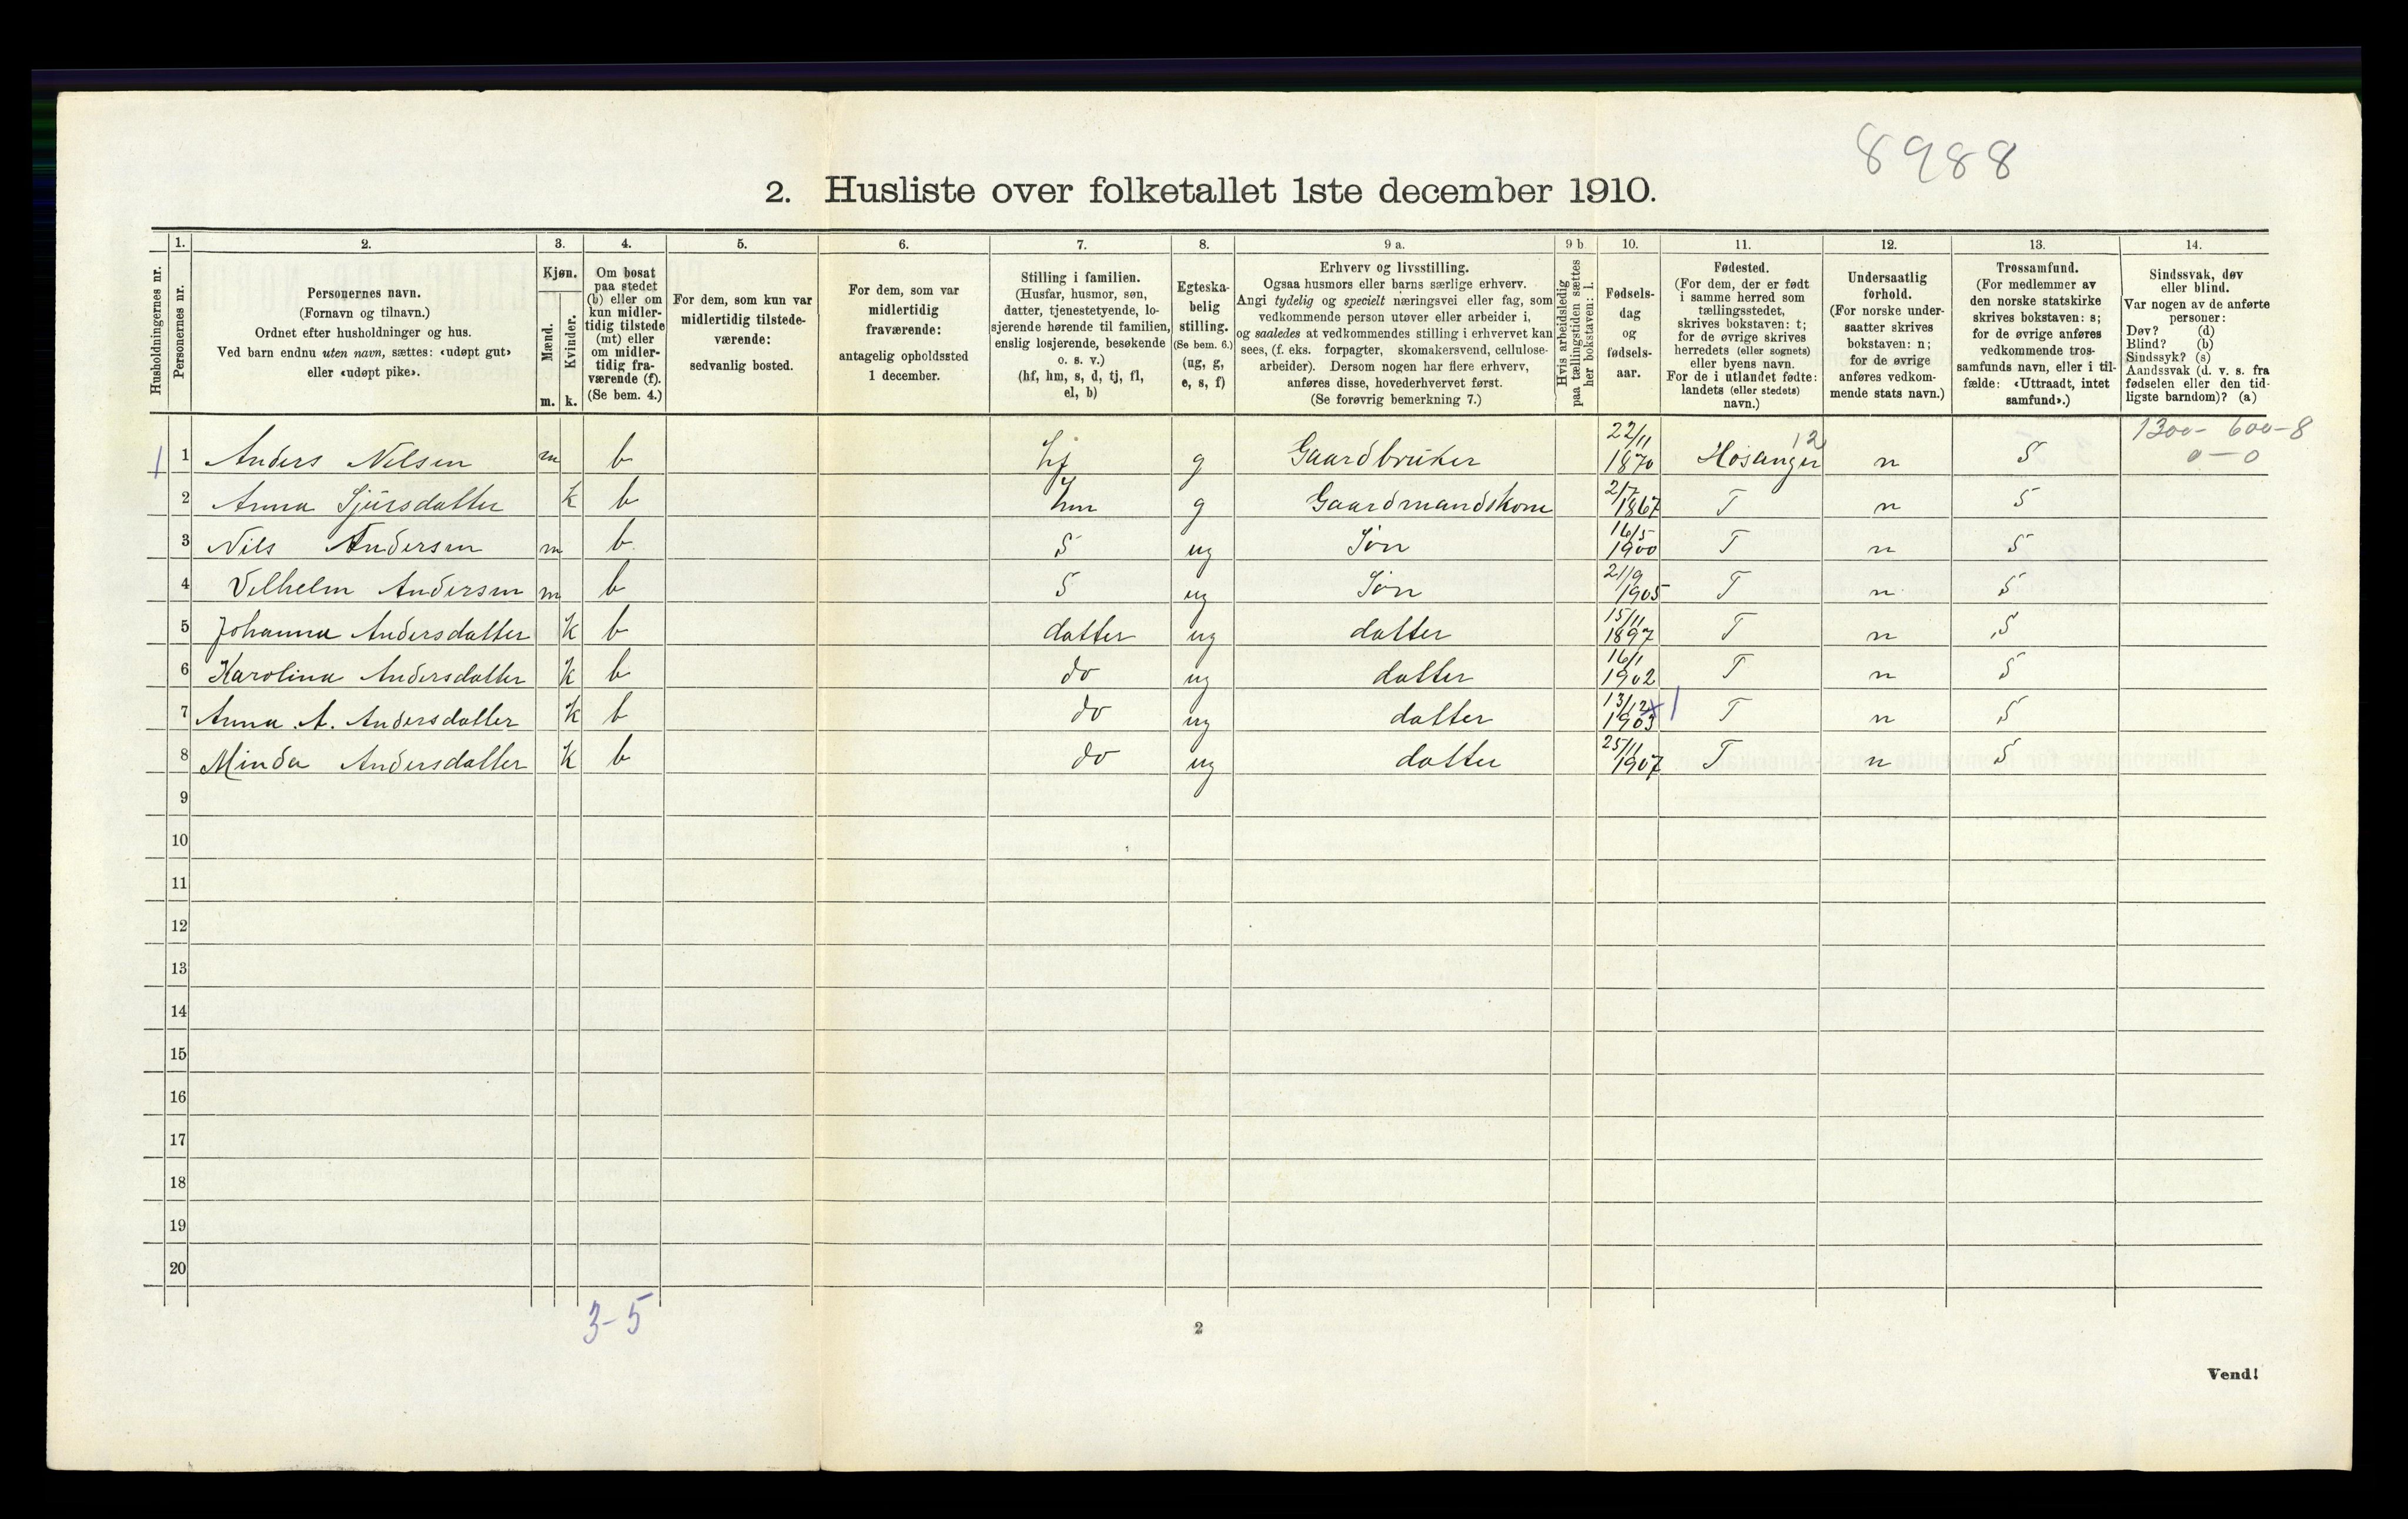 8988
2. Husliste over folketallet 1ste december 1910.
Husholdningernes nr.
1. Personernes nr.
2. Personernes navn.
(Fornavn og tilnavn.)
Ordnet efter husholdninger og hus.
Ved barn endnu uten navn, sættes: «udøpt gut»
eller «udøpt pike».
3. Kjøn.
Mænd. m.
Kvinder. k.
4. Om bosat
paa stedet
(b) eller om
kun midler-
tidig tilstede
(mt) eller
om midler-
tidig fra-
værende (f).
(Se bem. 4.)
5. For dem, som kun var
midlertidig tilstede-
værende:
sedvanlig bosted.
6. For dem, som var
midlertidig
fraværende:
antagelig opholdssted
1 december.
7. Stilling i familien.
(Husfar, husmor, søn,
datter, tjenestetyende, lo-
sjerende hørende til familien,
enslig losjerende, besøkende
o. s. v.)
(hf, hm, s, d, tj, fl,
el, b)
8. Egteska-
belig
stilling.
(Se bem. 6.)
(ug, g,
e, s, f)
9 a. Erhverv og livsstilling.
Ogsaa husmors eller barns særlige erhverv.
Angi tydelig og specielt næringsvei eller fag, som
vedkommende person utøver eller arbeider i,
og saaledes at vedkommendes stilling i erhvervet kan
sees, (f. eks. forpagter, skomakersvend, cellulose-
arbeider). Dersom nogen har flere erhverv,
anføres disse, hovederhvervet først.
(Se forøvrig bemerkning 7.)
9 b Hvis arbeidsledig
paa tællingstiden sættes
her bokstaven: l.
10. Fødsels-
dag
og
fødsels-
aar.
11. Fødested.
(For dem, der er født
i samme herred som
tællingsstedet,
skrives bokstaven: t;
for de øvrige skrives
herredets (eller sognets)
eller byens navn.
For de i utlandet fødte:
landets (eller stedets)
navn.)
12. Undersaatlig
forhold.
(For norske under-
saatter skrives
bokstaven: n;
for de øvrige
anføres vedkom-
mende stats navn.)
13. Trossamfund.
(For medlemmer av
den norske statskirke
skrives bokstaven: s;
for de øvrige anføres
vedkommende tros-
samfunds navn, eller i til-
fælde: «Uttraadt, intet
samfund».)
14. Sindssvak, døv
eller blind.
Var nogen av de anførte
personer:
Døv? (d)
Blind? (b)
Sindssyk? (s)
Aandssvak (d. v. s. fra
fødselen eller den tid-
ligste barndom)? (a)
1 1 Anders Nilsen m b hf g Gaardbruker 22/11 1870 Hosanger 12 n S 1300- 600-8
0-0
2 Anna Sjursdatter k b hm g Gaardmandskone 2/7 1867 T n S
3 Nils Andersen m b S ug Søn 16/5 1900 T n S
4 Vilhelm Andersen m b S ug Søn 21/9 1905 T n S
5 Johanna Andersdatter k b datter ug datter 15/11 1897 T n S
6 Karolina Andersdatter k b do ug datter 16/1 1902 T n S
7 Anna A. Andersdatter k b do ug datter 13/12 1903 x 1 T n S
8 Minda Andersdatter k b do ug datter 25/11 1907 T n S
9
10
11
12
13
14
15
16
17
18
19
20
3-5
2
Vend!